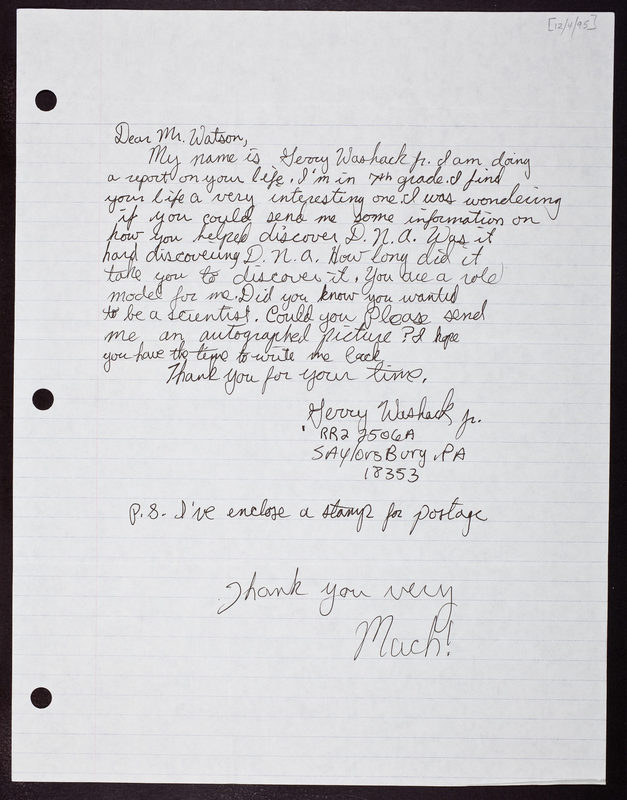 [12/4/95]
Dear Mr. Watson,
My name is Gerry Washack jr. I am doing
a report on your life. I'm in 7th grade. I find
your life a very interesting one. I was wondering
if you could send me some information on
how you helped discover D.N.A. Was it
hard discovering D.N.A. How long did it
take you to discover it. You are a role
model for me. Did you know you wanted
to be a scientist. Could you Please send
me an autographed picture? I hope
you have the time to write me back
Thank you for your time.
Gerry Washack jr.
RR2 2506A
SAylorsBury, PA
18353
P.S. I've enclose a stamp for postage
Thank you very
Much!